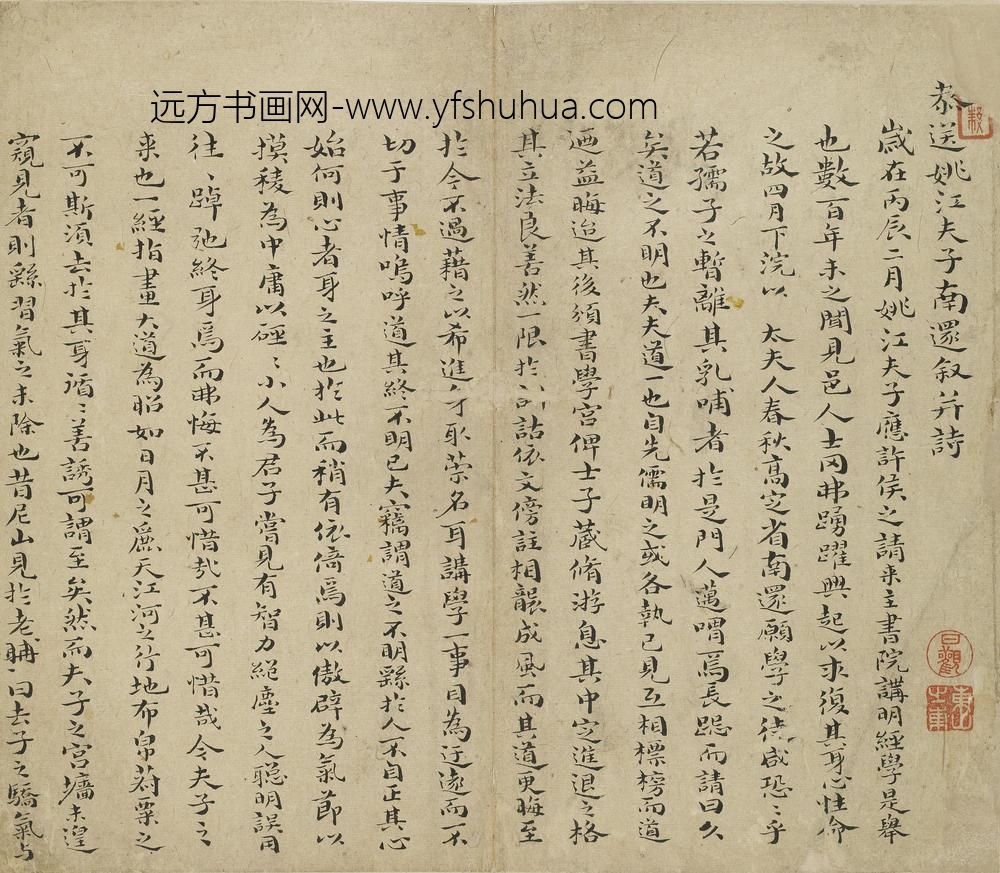 远方书画网-www.yfshuhua.com
恭送姚江夫子南還叙并詩
歲在丙辰二月姚江夫子應許侯之請来主書院講明經學是舉
也數百年未之聞見邑人士罔弗踴躍興起以求復其身心性命
之故四月下浣以 太夫人春秋高定省南還願學之徒咸恐ミ乎
若孺子之暫離其乳哺者於是門人萬喟焉長跽而請曰久
矣道之不明也夫夫道一也自先儒明之或各執己見互相標榜而道
迺益晦迨其後頒書學宮俾士子藏脩游息其中定進退之格
其立法良善然一限於訓詁依文傍註相襲成風而其道更晦至
於今不過藉之以希進身取榮名耳講學一事目為迂遠而不
切于事情嗚呼道其終不明已夫竊謂道之不明繇於人不自正其心
始何則心者身之主也於此而稍有依倚焉則以傲辟為氣節以
摸稜為中庸以硜ミ小人為君子嘗見有智力絕塵之人聰明誤用
往ミ踔弛終身焉而弗悔不甚可惜哉不甚可惜哉今夫子之
来也一經指畫大道為昭如日月之麗天江河之行地布帛菽粟之
不可斯須去於其身循ミ善誘可謂至矣然而夫子之宮墻未遑
窺見者則繇習氣之未除也昔尼山見於老聃曰去子之驕氣与